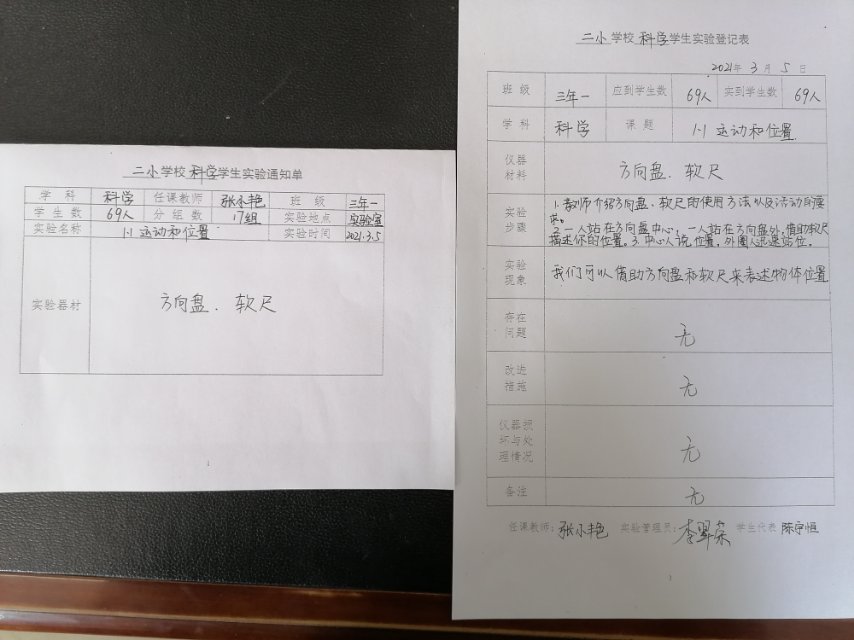 二小学校科学学生实验通知单
学科 科学 任课教师 张小艳 班级 三年一
学生数 69人 分组数 17组 实验地点 实验室
实验名称 1.1 运动和位置 实验时间 2021.3.5
实验器材 方向盘、软尺
1
二小学校科学学生实验登记表
2021年3月5日
班级 三年一 应到学生数 69人 实到学生数 69人
学科 科学 课题 1.1 运动和位置
仪器
材料
方向盘、软尺
实验
步骤
1.教师介绍方向盘、软尺的使用方法以及活动的要
求。
2.一人站在方向盘中心,一人站在方向盘外,借助软尺
描述你的位置。3.中心人说位置,外圈人迅速站位。
实验
现象
我们可以借助方向盘和软尺来表述物体位置
存在
问题
无
改进
措施
无
仪器损
坏与处
理情况
无
备注 无
任课教师:张小艳 实验管理员:李翠荣 学生代表 陈宇恒
1